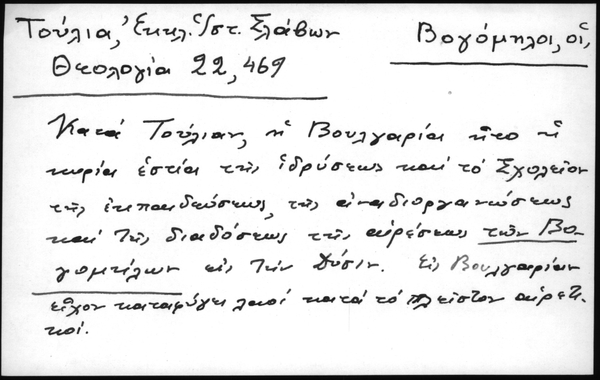 Τούλια, Ἐκκλ. Ἱστ. Σλάβων
Βογόμηλοι, οἱ,
Θεολογία 22, 469
Κατά Τούλιαν, ἡ Βουλγαρία ἦτο ἡ
κυρία ἑστία τῆς ἱδρύσεως καί τό Σχολεῖον
τῆς ἐκπαιδεύσεως, τῆς ἀναδιοργανώσεως
καί τῆς διαδόσεως τῆς αἱρέσεως τῶν Βο-
γομήλων εἰς τήν Δύσιν. Εἰς Βουλγαρίαν
εἶχον καταφύγει λαοί κατά τό πλεῖστον αἱρετι-
κοί.